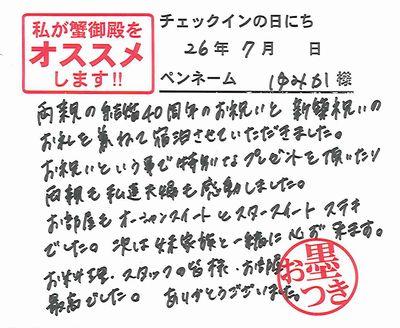 私が蟹御殿を
オススメ
します!!
チェックインの日にち
26年 7月 日
ペンネーム ゆみかし 様
両親の結婚40周年のお祝いと 新築祝いの
お礼を兼ねて宿泊させていただきました。
お祝いという事で特別なプレゼントを頂いたり
両親も私達夫婦も感動しました。
お部屋もオーシャンスイートとスタースイート ステキ
でした。次は妹家族と一緒に 必ず来ます。
お料理・スタッフの皆様・お部屋
最高でした。 ありがとうございました。
お墨つき